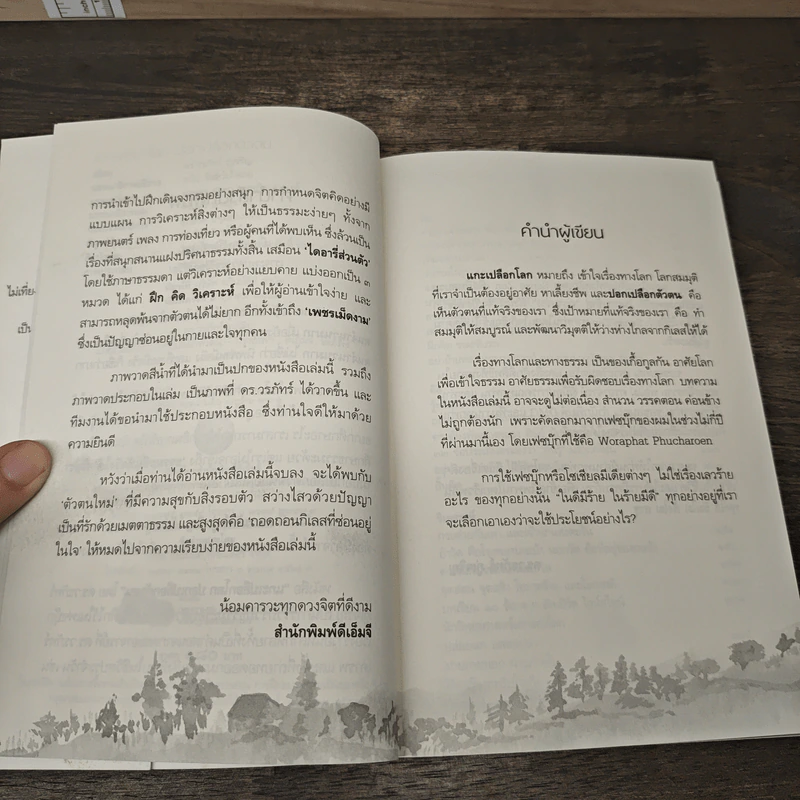 ไม่เที่ย
เป็น
การนำเข้าไปฝึกเดินจงกรมอย่างสนุก การกำหนดจิตคิดอย่างมี
แบบแผน การวิเคราะห์สิ่งต่างๆ ให้เป็นธรรมะง่ายๆ ทั้งจาก
ภาพยนตร์ เพลง การท่องเที่ยว หรือผู้คนที่ได้พบเห็น ซึ่งล้วนเป็น
เรื่องที่สนุกสนานแฝงปริศนาธรรมทั้งสิ้น เสมือน 'ไดอารี่ส่วนตัว'
โดยใช้ภาษาธรรมดา แต่วิเคราะห์อย่างแยบคาย แบ่งออกเป็น ๓
หมวด ได้แก่ ฝึก คิด วิเคราะห์ เพื่อให้ผู้อ่านเข้าใจง่าย และ
สามารถหลุดพ้นจากตัวตนได้ไม่ยาก อีกทั้งเข้าถึง 'เพชรเม็ดงาม'
ซึ่งเป็นปัญญาซ่อนอยู่ในกายและใจทุกคน
ภาพวาดสีน้ำที่ได้นำมาเป็นปกของหนังสือเล่มนี้ รวมถึง
ภาพวาดประกอบในเล่ม เป็นภาพที่ ดร.วรภัทร์ ได้วาดขึ้น และ
ทีมงานได้ขอนำมาใช้ประกอบหนังสือ ซึ่งท่านใจดีให้มาด้วย
ความยินดี
หวังว่าเมื่อท่านได้อ่านหนังสือเล่มนี้จบลง จะได้พบกับ
'ตัวตนใหม่' ที่มีความสุขกับสิ่งรอบตัว สว่างไสวด้วยปัญญา
เป็นที่รักด้วยเมตตาธรรม และสูงสุดคือ 'ถอดถอนกิเลสที่ซ่อนอยู่
ในใจ' ให้หมดไปจากความเรียบง่ายของหนังสือเล่มนี้
น้อมคารวะทุกดวงจิตที่ดีงาม
สำนักพิมพ์ดีเอ็มจี
คำนำผู้เขียน
แกะเปลือกโลก หมายถึง เข้าใจเรื่องทางโลก โลกสมมุติ
ที่เราจำเป็นต้องอยู่อาศัย หาเลี้ยงชีพ และปอกเปลือกตัวตน คือ
เห็นตัวตนที่แท้จริงของเรา ซึ่งเป้าหมายที่แท้จริงของเรา คือ ทำ
สมมุติให้สมบูรณ์ และพัฒนาวิมุตติให้ว่างห่างไกลจากกิเลสให้ได้
เรื่องทางโลกและทางธรรม เป็นของเกื้อกูลกัน อาศัยโลก
เพื่อเข้าใจธรรม อาศัยธรรมเพื่อรับผิดชอบเรื่องทางโลก บทความ
ในหนังสือเล่มนี้ อาจจะดูไม่ต่อเนื่อง สำนวน วรรคตอน ค่อนข้าง
ไม่ถูกต้องนัก เพราะคัดลอกมาจากเฟซบุ๊กของผมในช่วงไม่กี่ปี
ที่ผ่านมานี้เอง โดยเฟซบุ๊กที่ใช้คือ Woraphat Phucharoen
การใช้เฟซบุ๊กหรือโซเชียลมีเดียต่างๆ ไม่ใช่เรื่องเลวร้าย
อะไร ของทุกอย่างนั้น "ในดีมีร้าย ในร้ายมีดี" ทุกอย่างอยู่ที่เรา
จะเลือกเอาเองว่าจะใช้ประโยชน์อย่างไร?